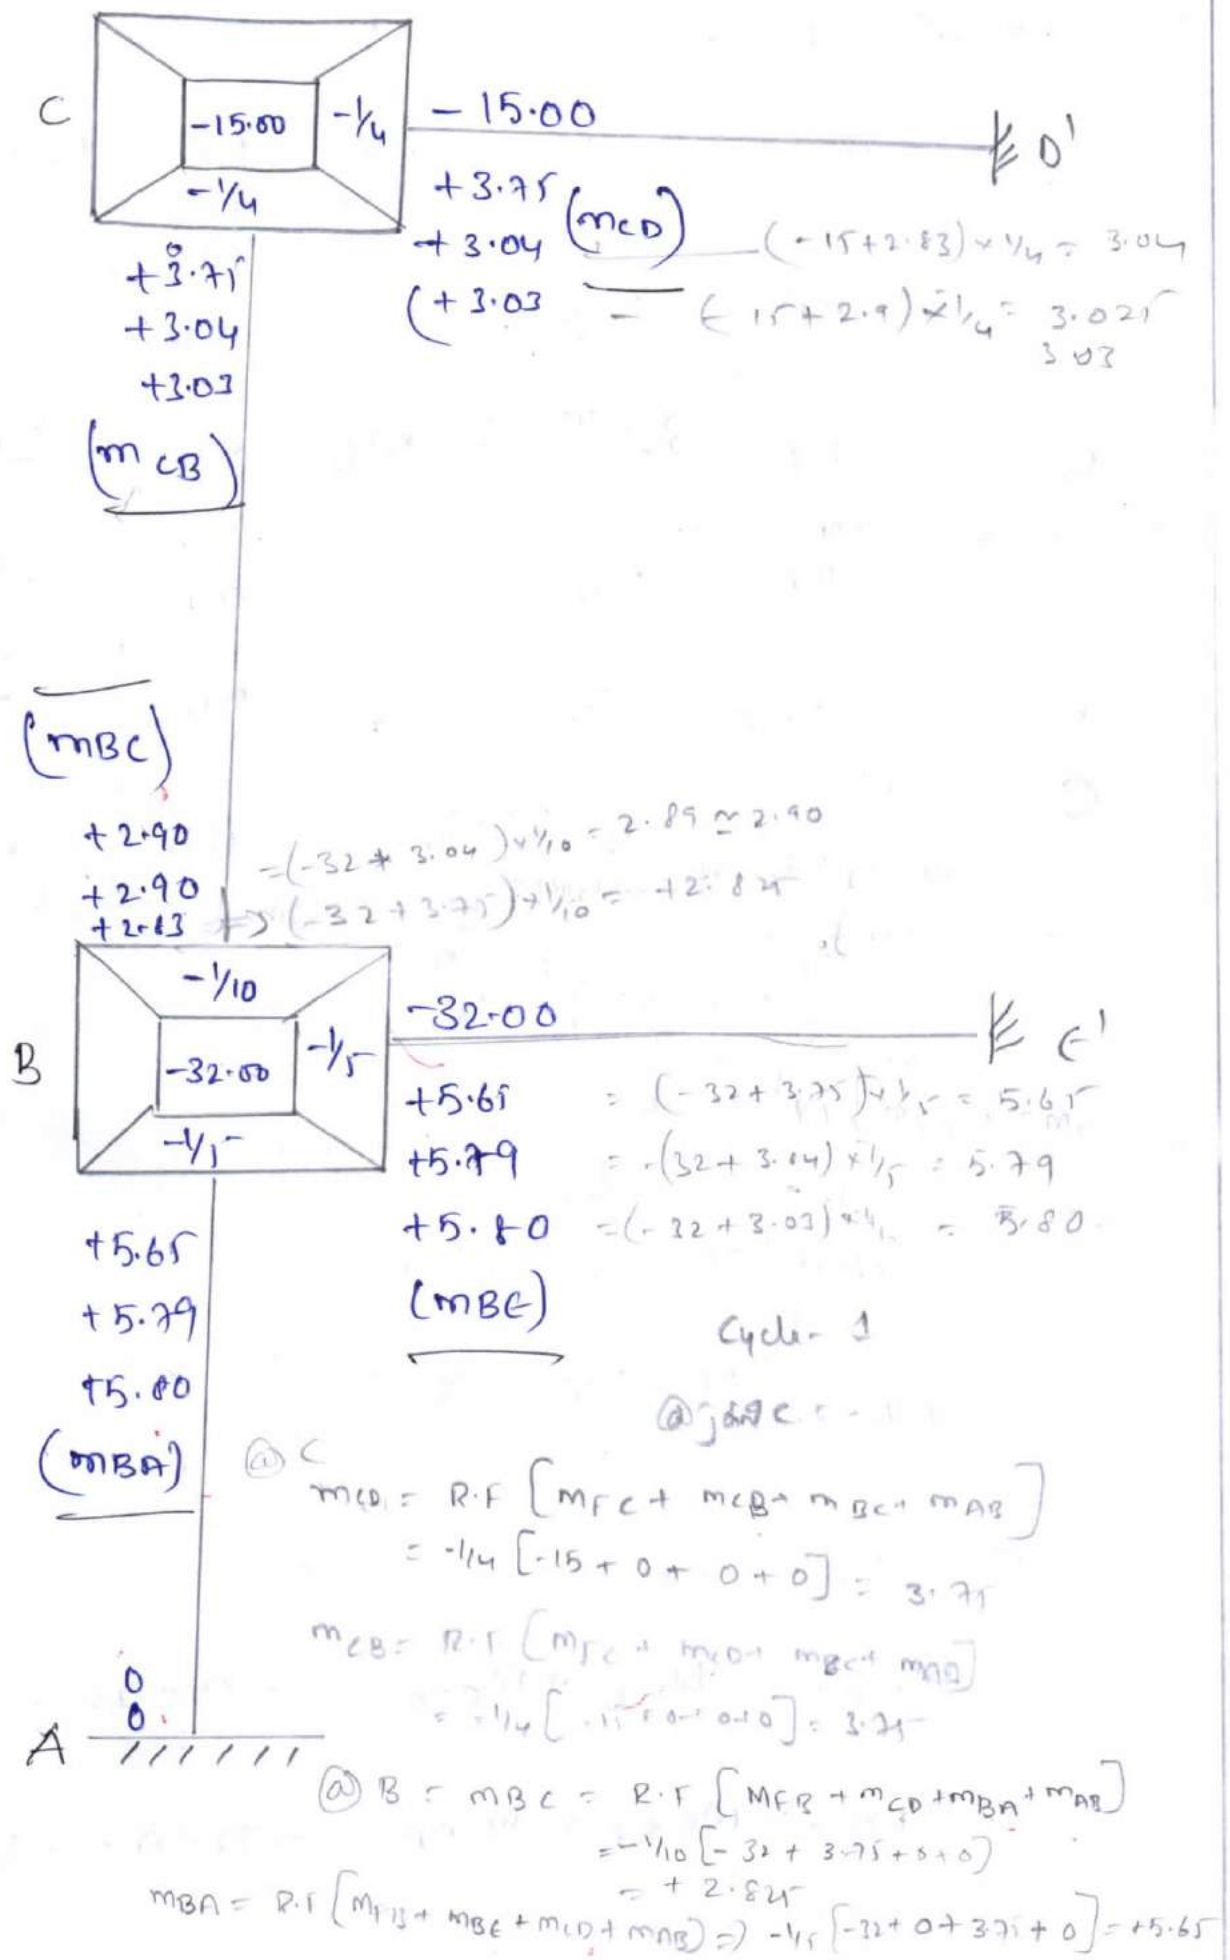 C
-15.00
-1/4
-1/4
-15.00
D'
+3.75
+3.04
(+3.03
(mCD)
(-15+2.83) x 1/4 = 3.04
= (-15+2.9) x 1/4 = 3.025
3.03
+3.75
+3.04
+3.03
(mCB)
(mBC)
+2.90
+2.90
+2.83
=(-32+3.04) x 1/10 = 2.89 ≃ 2.90
=> (-32+3.75) x 1/10 = +2.825
B
-1/10
-32.00
-1/5
-1/5
-32.00
E'
+5.65 = (-32+3.75) x 1/5 = 5.65
+5.79 = -(32+3.04) x 1/5 = 5.79
+5.80 = (-32+3.03) x 1/5 = 5.80
(mBE)
+5.65
+5.79
+5.80
(mBA)
Cycle-1
@ joint C :-
@ C
mCD = R.F [MFC + mCB + mBC + mAB]
= -1/4 [-15 + 0 + 0 + 0] = 3.75
mCB = R.F [MFC + mCD + mBC + mAB]
= -1/4 [-15 + 0 + 0 + 0] = 3.75
0
0
A
@ B = mBC = R.F [MFB + mCD + mBA + mAB]
= -1/10 [-32 + 3.75 + 0 + 0]
= +2.825
mBA = R.F [MFB + mBE + mCD + mAB] => -1/5 [-32 + 0 + 3.75 + 0] = +5.65